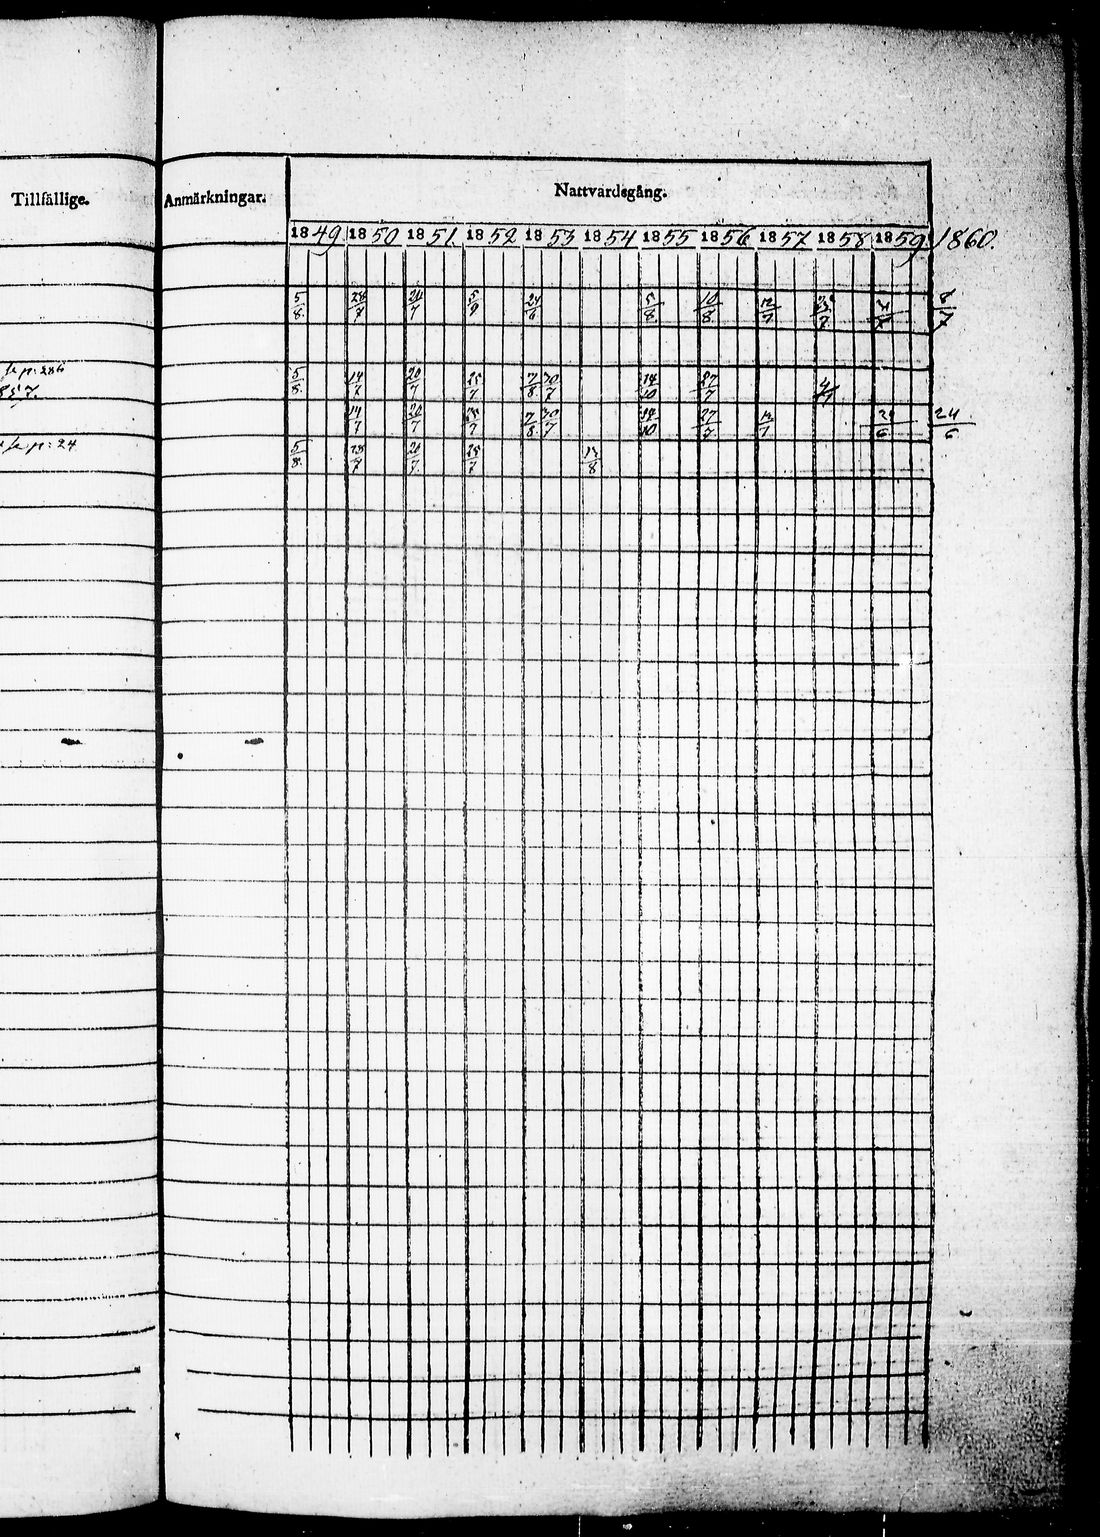 Tillfällige. Anmärkningar. Nattvardsgång.
1849 1850 1851 1852 1853 1854 1855 1856 1857 1858 1859 1860.
5/8 28/7 20/7 5/9 24/6 5/8 10/8 12/7 25/7 8/7
p: 286 5/8 14/7 20/7 25/7 7/8 30/7 14/10 27/7 4/7
857.
14/7 20/7 25/7 7/8 30/7 14/10 27/7 12/7 24/6 24/6
p: 24 5/8 28/7 20/7 25/7 13/8